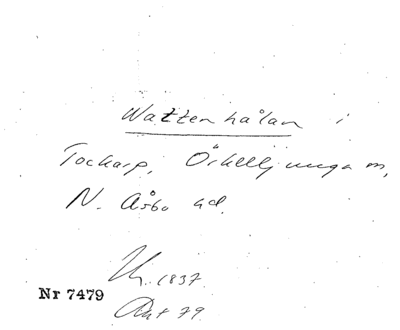 Wattenhålan i
Tockarp, Örkelljunga sn,
N. Åsbo hd.
1837.
Nr 7479
79